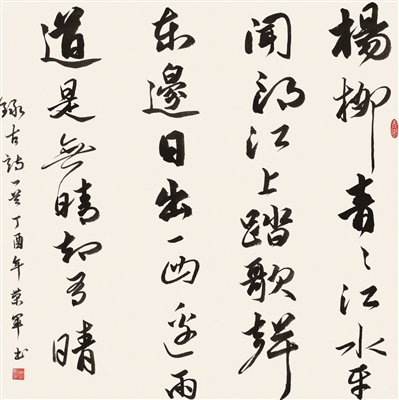 楊柳青〻江水平
聞郎江上踏歌聲
東邊日出西邊雨
道是無晴却有晴
錄古詩一首丁酉年榮軍书